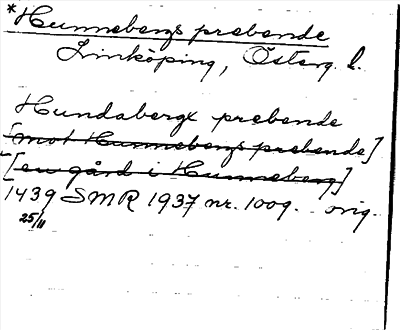 *Hunnebergs prebende
Linköping, Österg. l.
Hundabergx prebende
[mot Hunnebergs prebende]
[en gård i Hunneberg]
1439 SMR 1937 nr. 1009. orig.
25/11